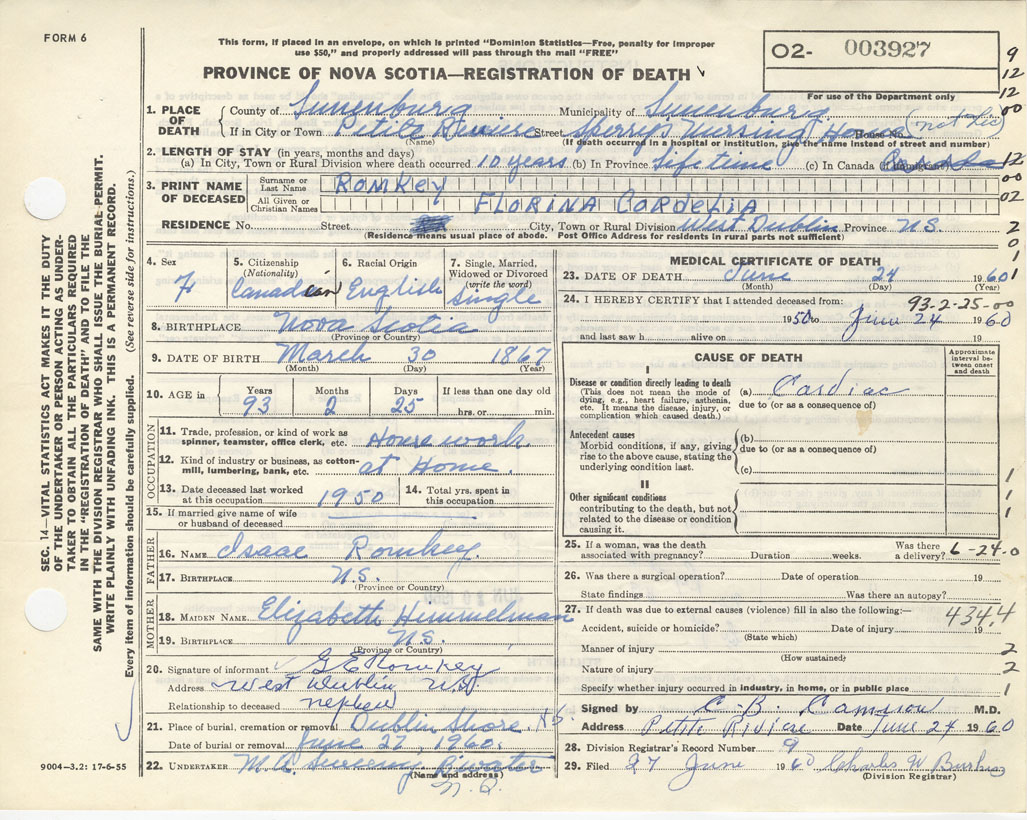 FORM 6
This form, if placed in an envelope, on which is printed "Dominion Statistics—Free, penalty for improper
use $50," and properly addressed will pass through the mail "FREE"
PROVINCE OF NOVA SCOTIA—REGISTRATION OF DEATH
O2- 003927
For use of the Department only
9
12
12
00
1. PLACE OF DEATH
County of Lunenburg Municipality of Lunenburg
If in City or Town Petite Riviere Street Sperry's Nursing Home House No. (not Lic)
(Name) (If death occurred in a hospital or institution, give the name instead of street and number)
2. LENGTH OF STAY (in years, months and days)
(a) In City, Town or Rural Division where death occurred 10 years (b) In Province Life time (c) In Canada (if immigrant)
12
00
02
3. PRINT NAME OF DECEASED
Surname or Last Name Romkey
All Given or Christian Names Florina Cordelia
RESIDENCE No. Street City, Town or Rural Division West Dublin Province N.S.
(Residence means usual place of abode. Post Office Address for residents in rural parts not sufficient)
2
0
1
SEC. 14—VITAL STATISTICS ACT MAKES IT THE DUTY
OF THE UNDERTAKER OR PERSON ACTING AS UNDER-
TAKER TO OBTAIN ALL THE PARTICULARS REQUIRED
IN THE "REGISTRATION OF DEATH" AND TO FILE THE
SAME WITH THE DIVISION REGISTRAR WHO SHALL ISSUE THE BURIAL PERMIT.
WRITE PLAINLY WITH UNFADING INK. THIS IS A PERMANENT RECORD.
Every item of information should be carefully supplied. (See reverse side for instructions.)
4. Sex F
5. Citizenship (Nationality) Canadian
6. Racial Origin English
7. Single, Married, Widowed or Divorced (write the word) Single
8. BIRTHPLACE Nova Scotia
(Province or Country)
9. DATE OF BIRTH March 30 1867
(Month) (Day) (Year)
10. AGE in Years 93 Months 2 Days 25 If less than one day old hrs. or min.
OCCUPATION
11. Trade, profession, or kind of work as spinner, teamster, office clerk, etc. House work
12. Kind of industry or business, as cotton-mill, lumbering, bank, etc. at Home
13. Date deceased last worked at this occupation 1950
14. Total yrs. spent in this occupation
15. If married give name of wife or husband of deceased
FATHER
16. NAME Isaac Romkey
17. BIRTHPLACE N.S.
(Province or Country)
MOTHER
18. MAIDEN NAME Elizabeth Himmelman
19. BIRTHPLACE N.S.
(Province or Country)
20. Signature of informant G E Romkey
Address West Dublin N.S.
Relationship to deceased nephew
21. Place of burial, cremation or removal Dublin Shore N.S.
Date of burial or removal June 27, 1960
22. UNDERTAKER M. A. Sweeny
(Name and address)
N.S.
9004—3.2: 17-6-55
MEDICAL CERTIFICATE OF DEATH
23. DATE OF DEATH June 24 1960
(Month) (Day) (Year)
1
24. I HEREBY CERTIFY that I attended deceased from: 93-2-25-00
1950 to June 24 1960
and last saw h alive on 19
CAUSE OF DEATH
Approximate interval between onset and death
I
Disease or condition directly leading to death
(This does not mean the mode of dying, e.g., heart failure, asthenia, etc. It means the disease, injury, or complication which caused death.)
(a) Cardiac
due to (or as a consequence of)
Antecedent causes
Morbid conditions, if any, giving rise to the above cause, stating the underlying condition last.
(b)
due to (or as a consequence of)
(c)
II
Other significant conditions contributing to the death, but not related to the disease or condition causing it.
1
1
1
25. If a woman, was the death associated with pregnancy? Duration weeks. Was there a delivery? 6-24-0
26. Was there a surgical operation? Date of operation 19
State findings Was there an autopsy?
27. If death was due to external causes (violence) fill in also the following:— 434.4
Accident, suicide or homicide? Date of injury 19
(State which)
Manner of injury 2
(How sustained)
Nature of injury 2
Specify whether injury occurred in industry, in home, or in public place 1
Signed by C. B. Cameron M.D.
Address Petite Riviere Date June 24 1960
28. Division Registrar's Record Number 9
29. Filed 27 June 1960 Charles W
(Division Registrar)